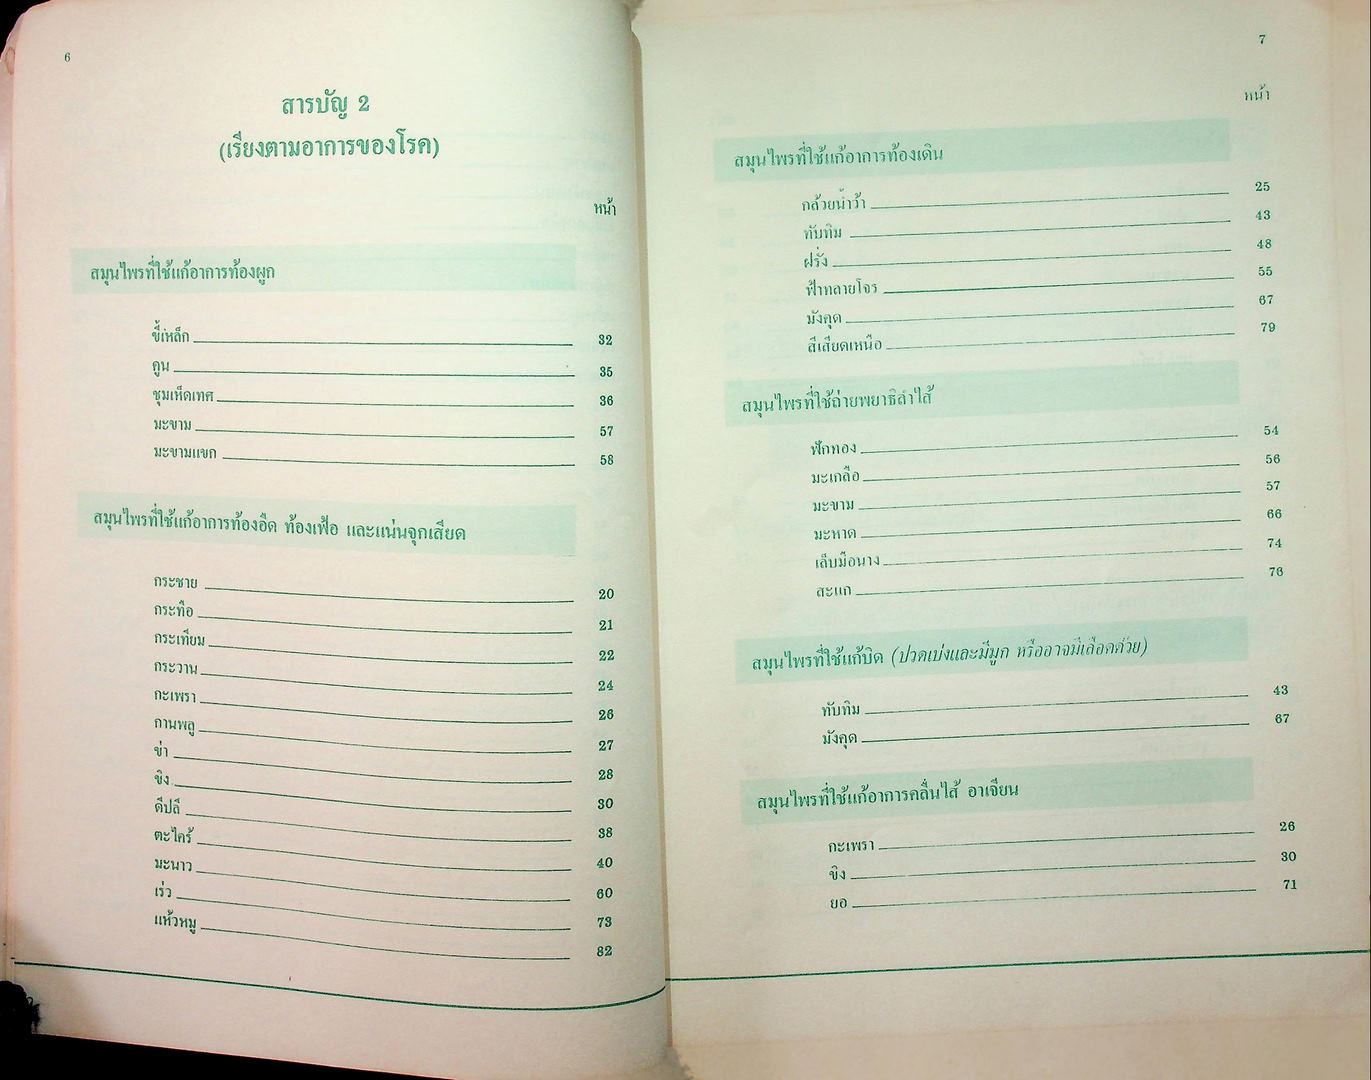 6
สารบัญ 2
(เรียงตามอาการของโรค)
หน้า
สมุนไพรที่ใช้แก้อาการท้องผูก
ขี้เหล็ก 32
คูน 35
ชุมเห็ดเทศ 36
มะขาม 57
มะขามแขก 58
สมุนไพรที่ใช้แก้อาการท้องอืด ท้องเฟ้อ และแน่นจุกเสียด
กระชาย 20
กระทือ 21
กระเทียม 22
กระวาน 24
กะเพรา 26
กานพลู 27
ข่า 28
ขิง 30
ดีปลี 38
ตะไคร้ 40
มะนาว 60
เร่ว 73
แห้วหมู 82
7
หน้า
สมุนไพรที่ใช้แก้อาการท้องเดิน
กล้วยน้ำว้า 25
ทับทิม 43
ฝรั่ง 48
ฟ้าทลายโจร 55
มังคุด 67
สีเสียดเหนือ 79
สมุนไพรที่ใช้ถ่ายพยาธิลำไส้
ฟักทอง 54
มะเกลือ 56
มะขาม 57
มะหาด 66
เล็บมือนาง 74
สะแก 76
สมุนไพรที่ใช้แก้บิด (ปวดเบ่งและมีมูก หรืออาจมีเลือดด้วย)
ทับทิม 43
มังคุด 67
สมุนไพรที่ใช้แก้อาการคลื่นไส้ อาเจียน
กะเพรา 26
ขิง 30
ยอ 71